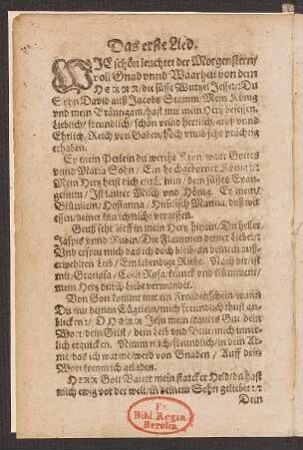 Das erste Lied.
WIE schön leuchtet der Morgenstern/
voll Gnad vnnd Waarheit von dem
HERRN/ die süsse Wurtzel Jesse/:/ Du
Sohn David auß Jacobs Stamm/ Mein König
vnd mein Bräutigam/ hast mir mein Hertz besessen/
Lieblich/ freundlich/ schön vnnd herrlich/ groß vnnd
Ehrlich/ Reich von Gaben/ hoch vnnd sehr prächtig
erhaben.
Ey mein Perlein du werthe Kron/ waar Gottes
vnnd Maria Sohn/ Ein hochgeborner König/:/
Mein Hertz heist dich ein lilium/ dein süsses Evan-
gelium/ Ist lauter Milch vnd Hönig. Ey mein/
Blümlein/ Hosianna/ Himlisch Manna/ daß wir
essen/ deiner kan ich nicht vergessen.
Geuß sehr tieff in mein Hertz hinein/ Du heller
Jaspis vnnd Rubin/ Die Flammen deiner Liebe/:/
Vnd erfrew mich das ich doch bleib/ an deinem auß-
erwehlten Leib/ Ein lebendige Riebe. Nach dir/ ist
mir Gratiosa/ Coeli Rosa/ kranck vnd
mein Hertz durch liebe verwundet.
Von Gott kommt mir ein Frewdenschein/ wann
Du mit deinen Eüglein/ mich freundlich thust an-
blicken/:/ O HERR Jesu mein trautes Gut/ dein
Wort/ dein Geist/ dein leib vnd Blut/ mich inner-
lich erquicken. Nimm mich/ freundlich/ in dein Ar-
me/ das ich warme/ werd von Gnaden/ Auff dein
Wort komm ich geladen.
HERR Gott Vatter mein starcker Held/ du hast
mich ewig vor der welt/ in deinem Sohn geliebet/:/
Dein
Ex
Bibl. Regia
Berolin.